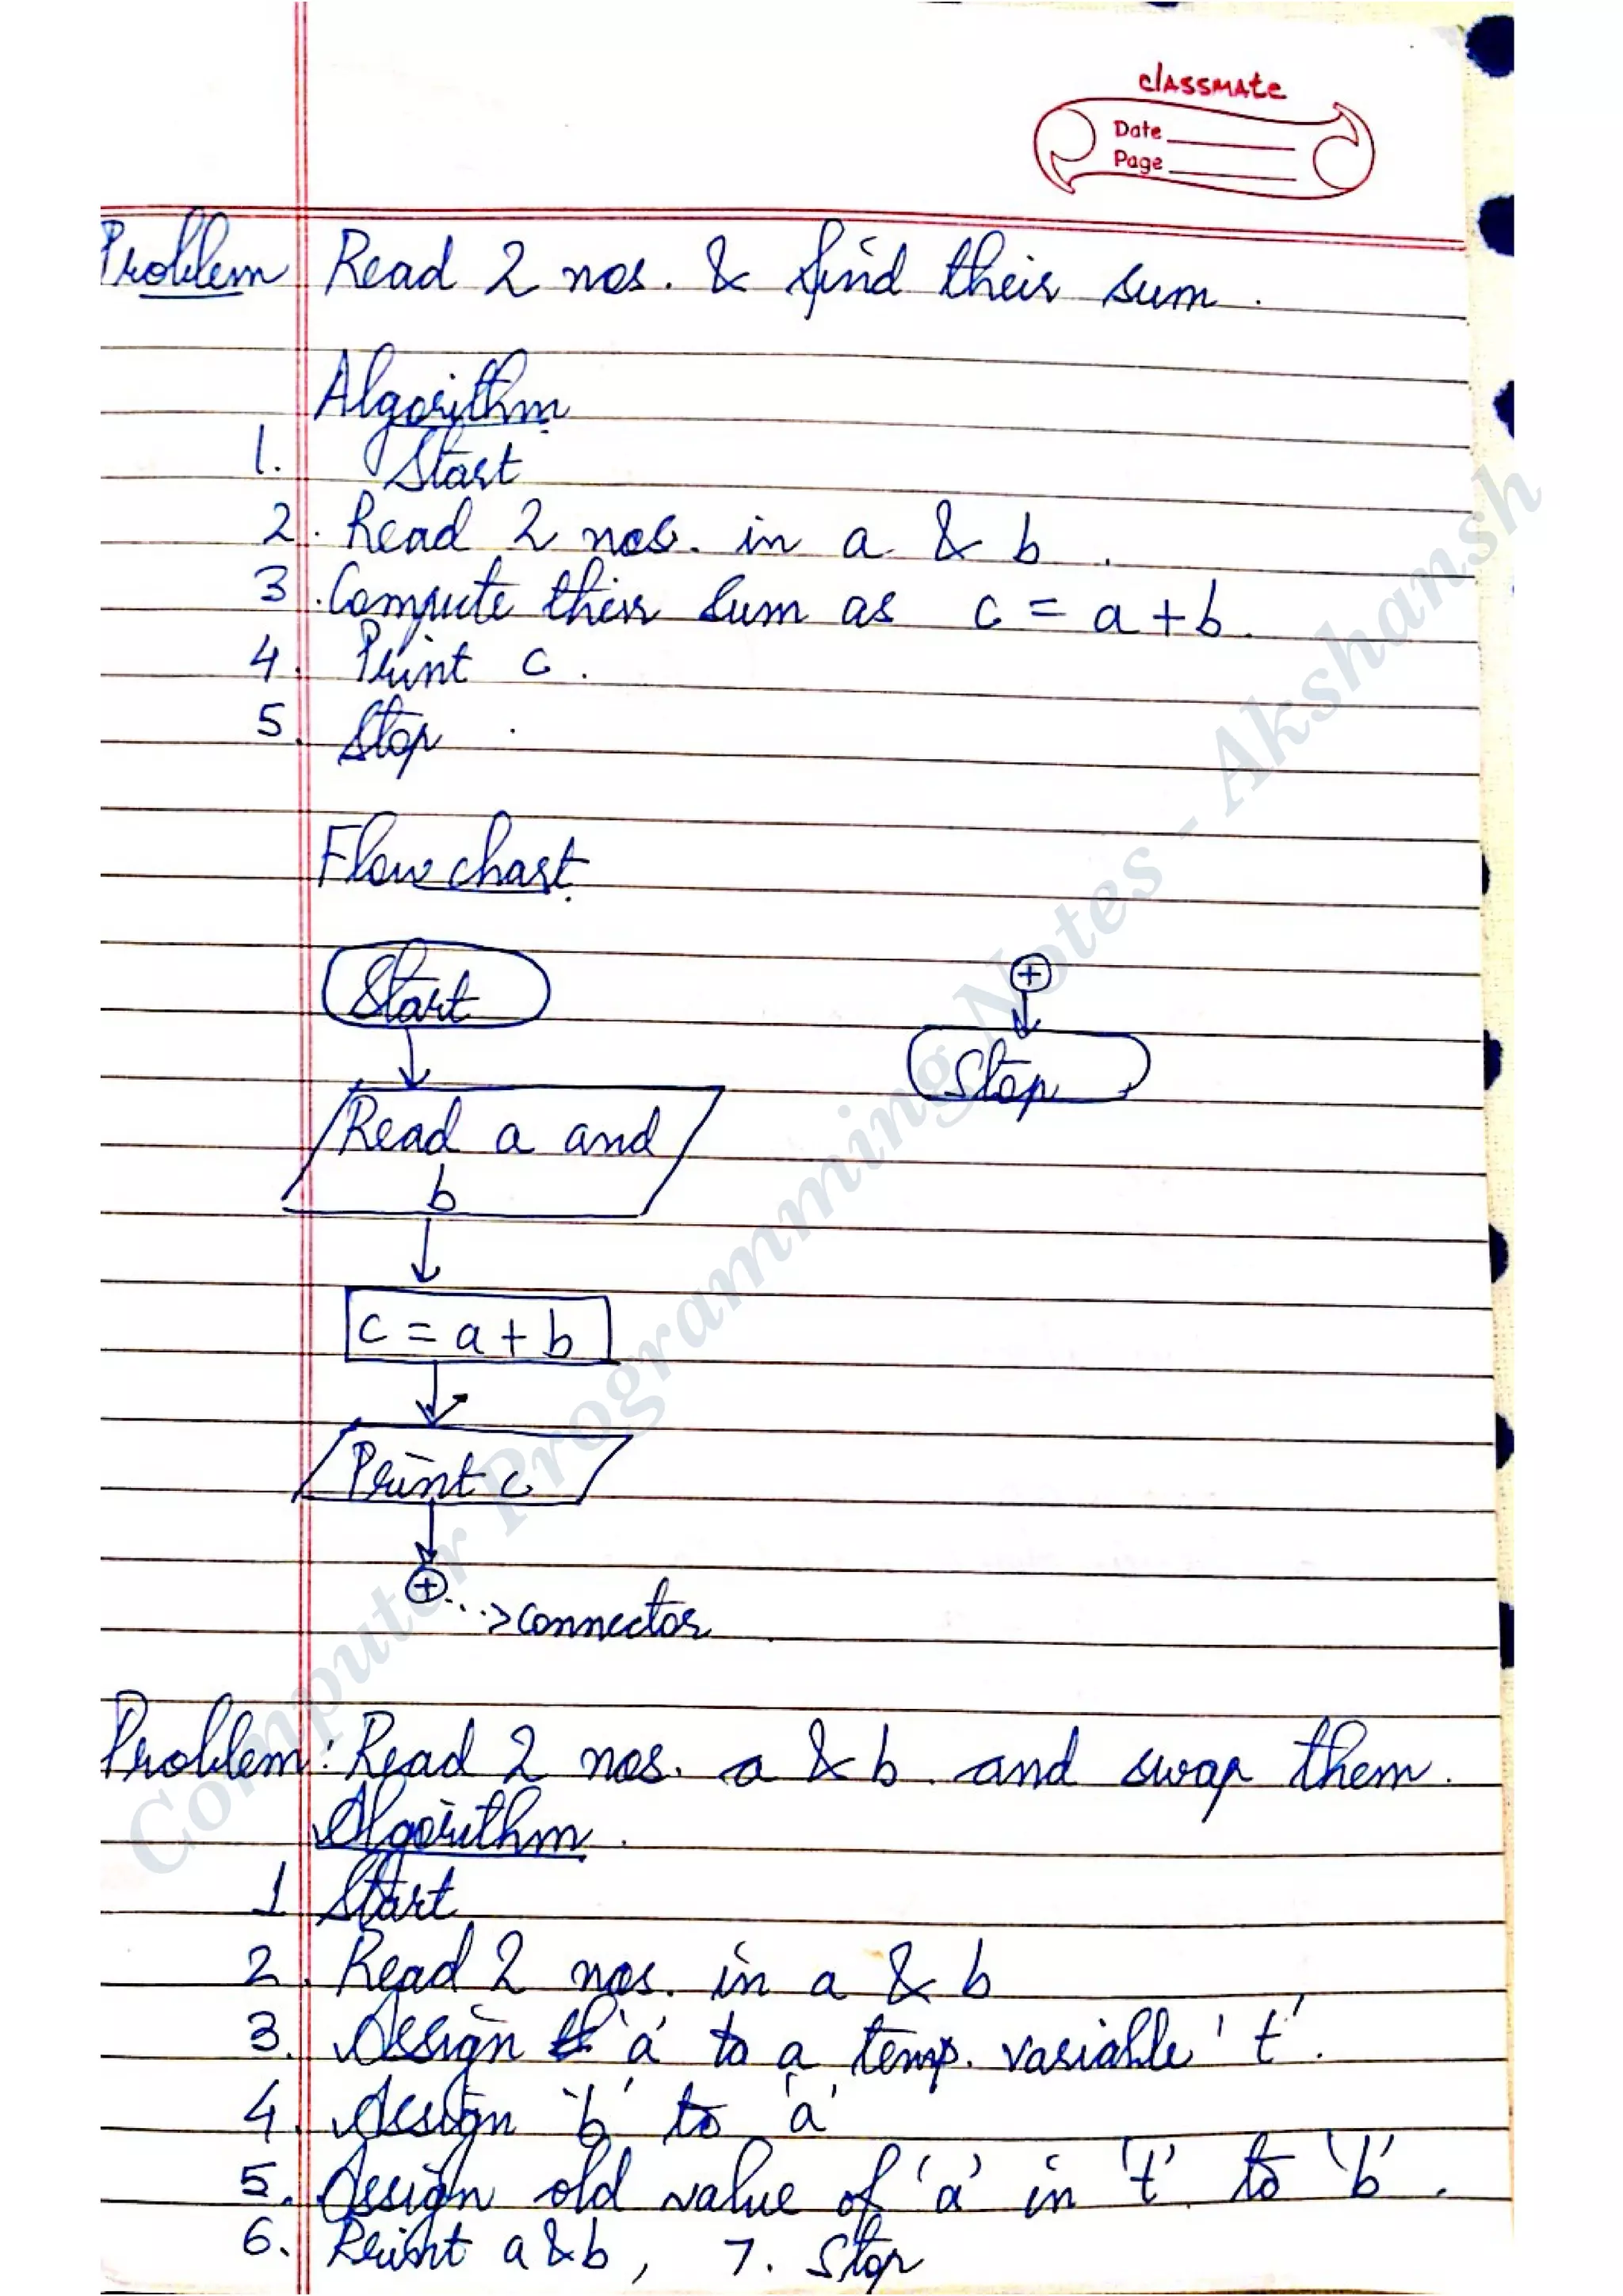 classmate
Date
Page
Problem Read 2 nos. & find their sum.
Algorithm
1. Start
2. Read 2 nos. in a & b.
3. Compute their sum as c = a + b.
4. Print c.
5. Stop
Flow chart
Start
Read a and
b
c = a + b
Print c
+ ...> connector
+
Stop
Problem: Read 2 nos. a & b and swap them.
Algorithm
1 Start
2. Read 2 nos. in a & b
3. Assign 'a' to a temp. variable 't'.
4. Assign 'b' to 'a'
5. Assign old value of 'a' in 't' to 'b'.
6. Print a & b, 7. Stop
Computer Programming Notes - Akshansh